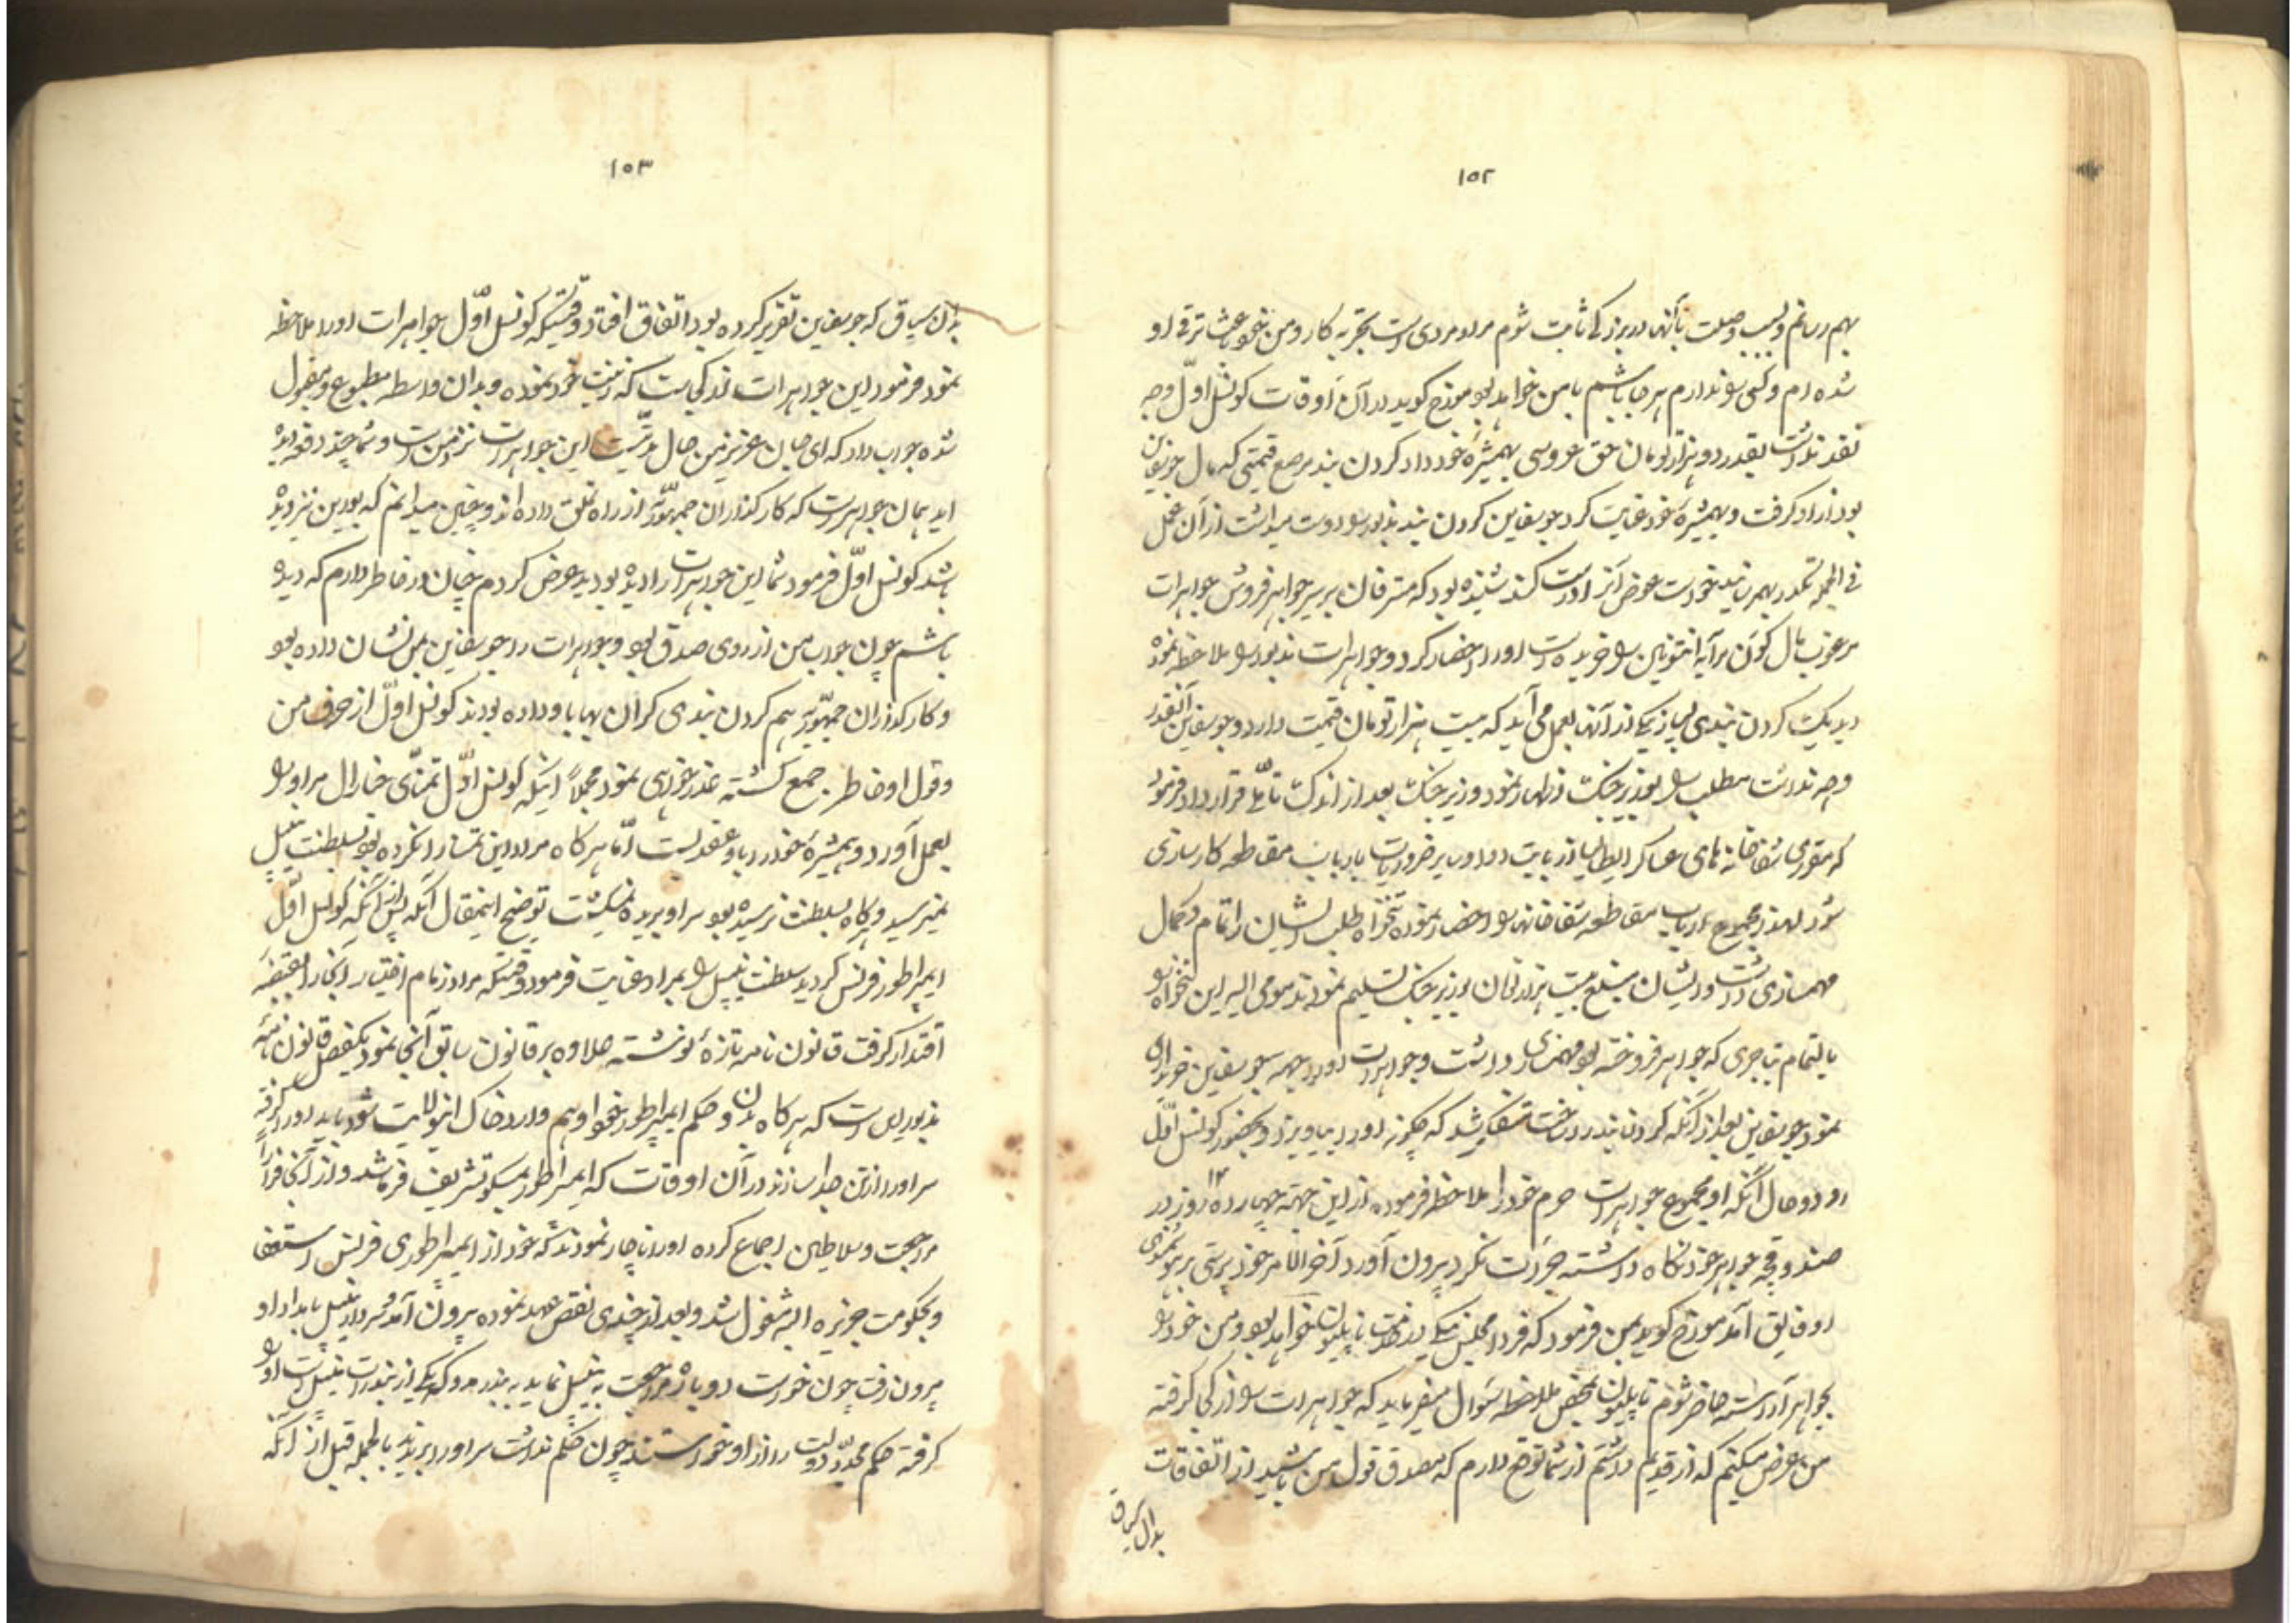 ۱۵۲
بهم رسانم و بسبب وصلت بآنها در بزرگی ثابت شوم مراد مردی است تجربه کار و من خود باعث ترقی او
شده ام و کسی را ندارم هر جا باشم با من خواهد بود مورخ گوید در آن اوقات کونسل اول وجه
نقد نداشت بقدر دو هزار تومان حق عروسی بهمشیره خود داد گردن بند مرصع قیمتی که مال جوسفاین
بود از او گرفت و بهمشیره خود عنایت کرد جوسفاین گردن بند مذبور را دوست میداشت از آن عمل
فی الجمله تکدر بهمرسانید خواست عوض آنرا درست کند شنیده بود که مسترفان برسیر جواهر فروش جواهرات
مرغوب مال کوئن مرآیه انتونیت را خریده است او را احضار کرد و جواهرات مذبور را ملاحظه نموده
دید یک گردن بندی بسیار نیک از آنها بعمل می آید که بیست هزار تومان قیمت دارد و جوسفاین آنقدر
وجه نداشت مطلب را بوزیر جنگ اظهار نمود وزیر جنگ بعد از اندک تأملی قرار داد فرمود
که مقرری شفاخانه های عساکر ایطالیا از بابت دوا و سایر ضروریات بارباب مقاطعه کارسازی
شود لهذا مجموع ارباب مقاطعه شفاخانه را احضار نموده تنخواه طلب ایشان را تمام و کمال
مهمسازی داشت و ایشان مبلغ بیست هزار تومان بوزیر جنگ تسلیم نمودند مومی الیه این تنخواه را
بالتمام بتاجری که جواهر فروخته بود مهمسازی داشت و جواهرات او را بجهه جوسفاین خریداری
نمود جوسفاین بعد از آنکه گردن بند را ساخت متفکر شد که چگونه او را بیاویزد و بحضور کونسل اول
رود و حال آنکه او مجموع جواهرات حرم خود را ملاحظه فرموده از این جهة چهارده ۱۴ روز در
صندوقچه جواهر خود نگاه داشته جرات نکرد بیرون آورد آخر الامر خود پرستی بر خودنمائی
او فایق آمد مورخ گوید بمن فرمود که فردا مجلسی در خدمت ناپلیون خواهد بود و من خود را
بجواهر آراسته حاضر شوم ناپلیون بمحض ملاحظه سوال میفرماید که جواهرات را از کی گرفته
من عرض میکنم که از قدیم داشتم از شما توقع دارم که مصدق قول من باشید از اتفاقات
بدان سیاق
۱۵۳
بدان سیاق که جوسفاین تقریر کرده بود اتفاق افتاد وقتیکه کونسل اول جواهرات او را ملاحظه
نمود فرمود این جواهرات از کجاست که زینت خود نموده و بدان واسطه مطبوع و مقبول
شده جواب داد که ای جان عزیز من حال مدتیست این جواهرات نزد من است و شما چند دفعه دیده
اید همان جواهر است که کارگذاران جمهوریه از راه تملق داده اند و یقین میدانم که بورین نیز دیده
باشد کونسل اول فرمود شما این جواهرات را دیده بودید عرض کردم چنان در خاطر دارم که دیده
باشم چون جواب من از روی صدق بود و جواهرات را جوسفاین بمن نشان داده بود
و کارگذاران جمهوریه هم گردن بندی گران بها باو داده بودند کونسل اول از حرف من
و قول او خاطر جمع گشته عذر خواهی نمود مجملاً اینکه کونسل اول تمنای جنرال مراد را
بعمل آورد و همشیره خود را باو عقد بست اما هر گاه مراد این تمنا را نکرده بود بسلطنت نیپل
نمیرسید و هر گاه بسلطنت نرسیده بود سر او بریده نمیگشت توضیح اینمقال آنکه پس از آنکه کونسل اول
ایمپراطور فرنس گردید سلطنت نیپل را بمراد عنایت فرمود وقتیکه مراد زمام اختیار آنجا را بقبضه
اقتدار گرفت قانون نامه تازه نوشته علاوه بر قانون سابق آنجا نمود یکفصل قانون نامه
مذبور این است که هر گاه بدون حکم ایمپراطور نخواه و هم وارد خاک این ولایت شود باید او را گرفته
سر او را از تن جدا سازند در آن اوقات که ایمپراطور بمسکو تشریف فرما شد و از آنجا فراراً
مراجعت و سلاطین اجماع کرده او را ناچار نمودند که خود از ایمپراطوری فرنس استعفا
و بحکومت جزیره البه مشغول شد و بعد از چندی نقض عهد نموده بیرون آمد مراد از نیپل بامداد او
بیرون رفت چون خواست دوباره مراجعت به نیپل نماید به بندر که یکی از بندرات نیپل است او را
گرفته حکم مجدد دولت را از او خواستند چون حکم نداشت سر او را بریدند بالجمله قبل از آنکه